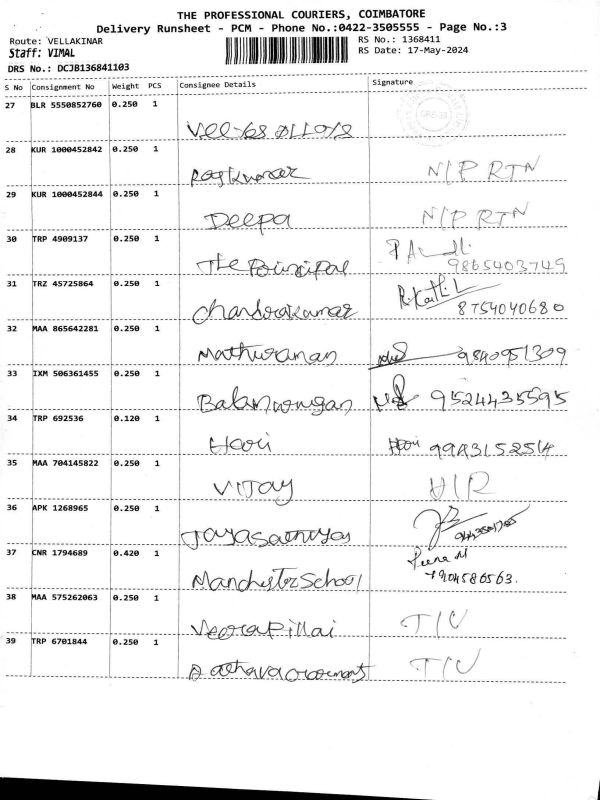 THE PROFESSIONAL COURIERS, COIMBATORE
Delivery Runsheet - PCM - Phone No.:0422-3505555 - Page No.:3
Route: VELLAKINAR RS No.: 1368411
Staff: VIMAL RS Date: 17-May-2024
DRS No.: DCJB136841103
S No Consignment No Weight PCS Consignee Details Signature
27 BLR 5550852760 0.250 1
28 KUR 1000452842 0.250 1
Rajkumar N/P RTN
29 KUR 1000452844 0.250 1
Deepa N/P RTN
30 TRP 4909137 0.250 1
The Principal 9865403749
31 TRZ 45725864 0.250 1
Chandrakumar 8754040680
32 MAA 865642281 0.250 1
Mathivanan 9840951309
33 IXM 506361455 0.250 1
Balamurugan 9524435595
34 TRP 692536 0.120 1
Hari Hari 9943152514
35 MAA 704145822 0.250 1
VIJay
36 APK 1268965 0.250 1
37 CNR 1794689 0.420 1
Manchester School 7904586563.
38 MAA 575262063 0.250 1
Veerapillai
39 TRP 6701844 0.250 1